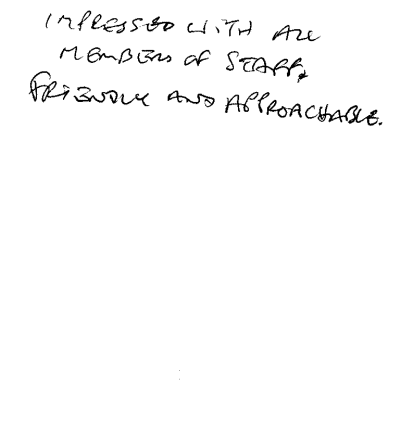 IMPRESSED WITH ALL
MEMBERS OF STAFF,
FRIENDLY AND APPROACHABLE.